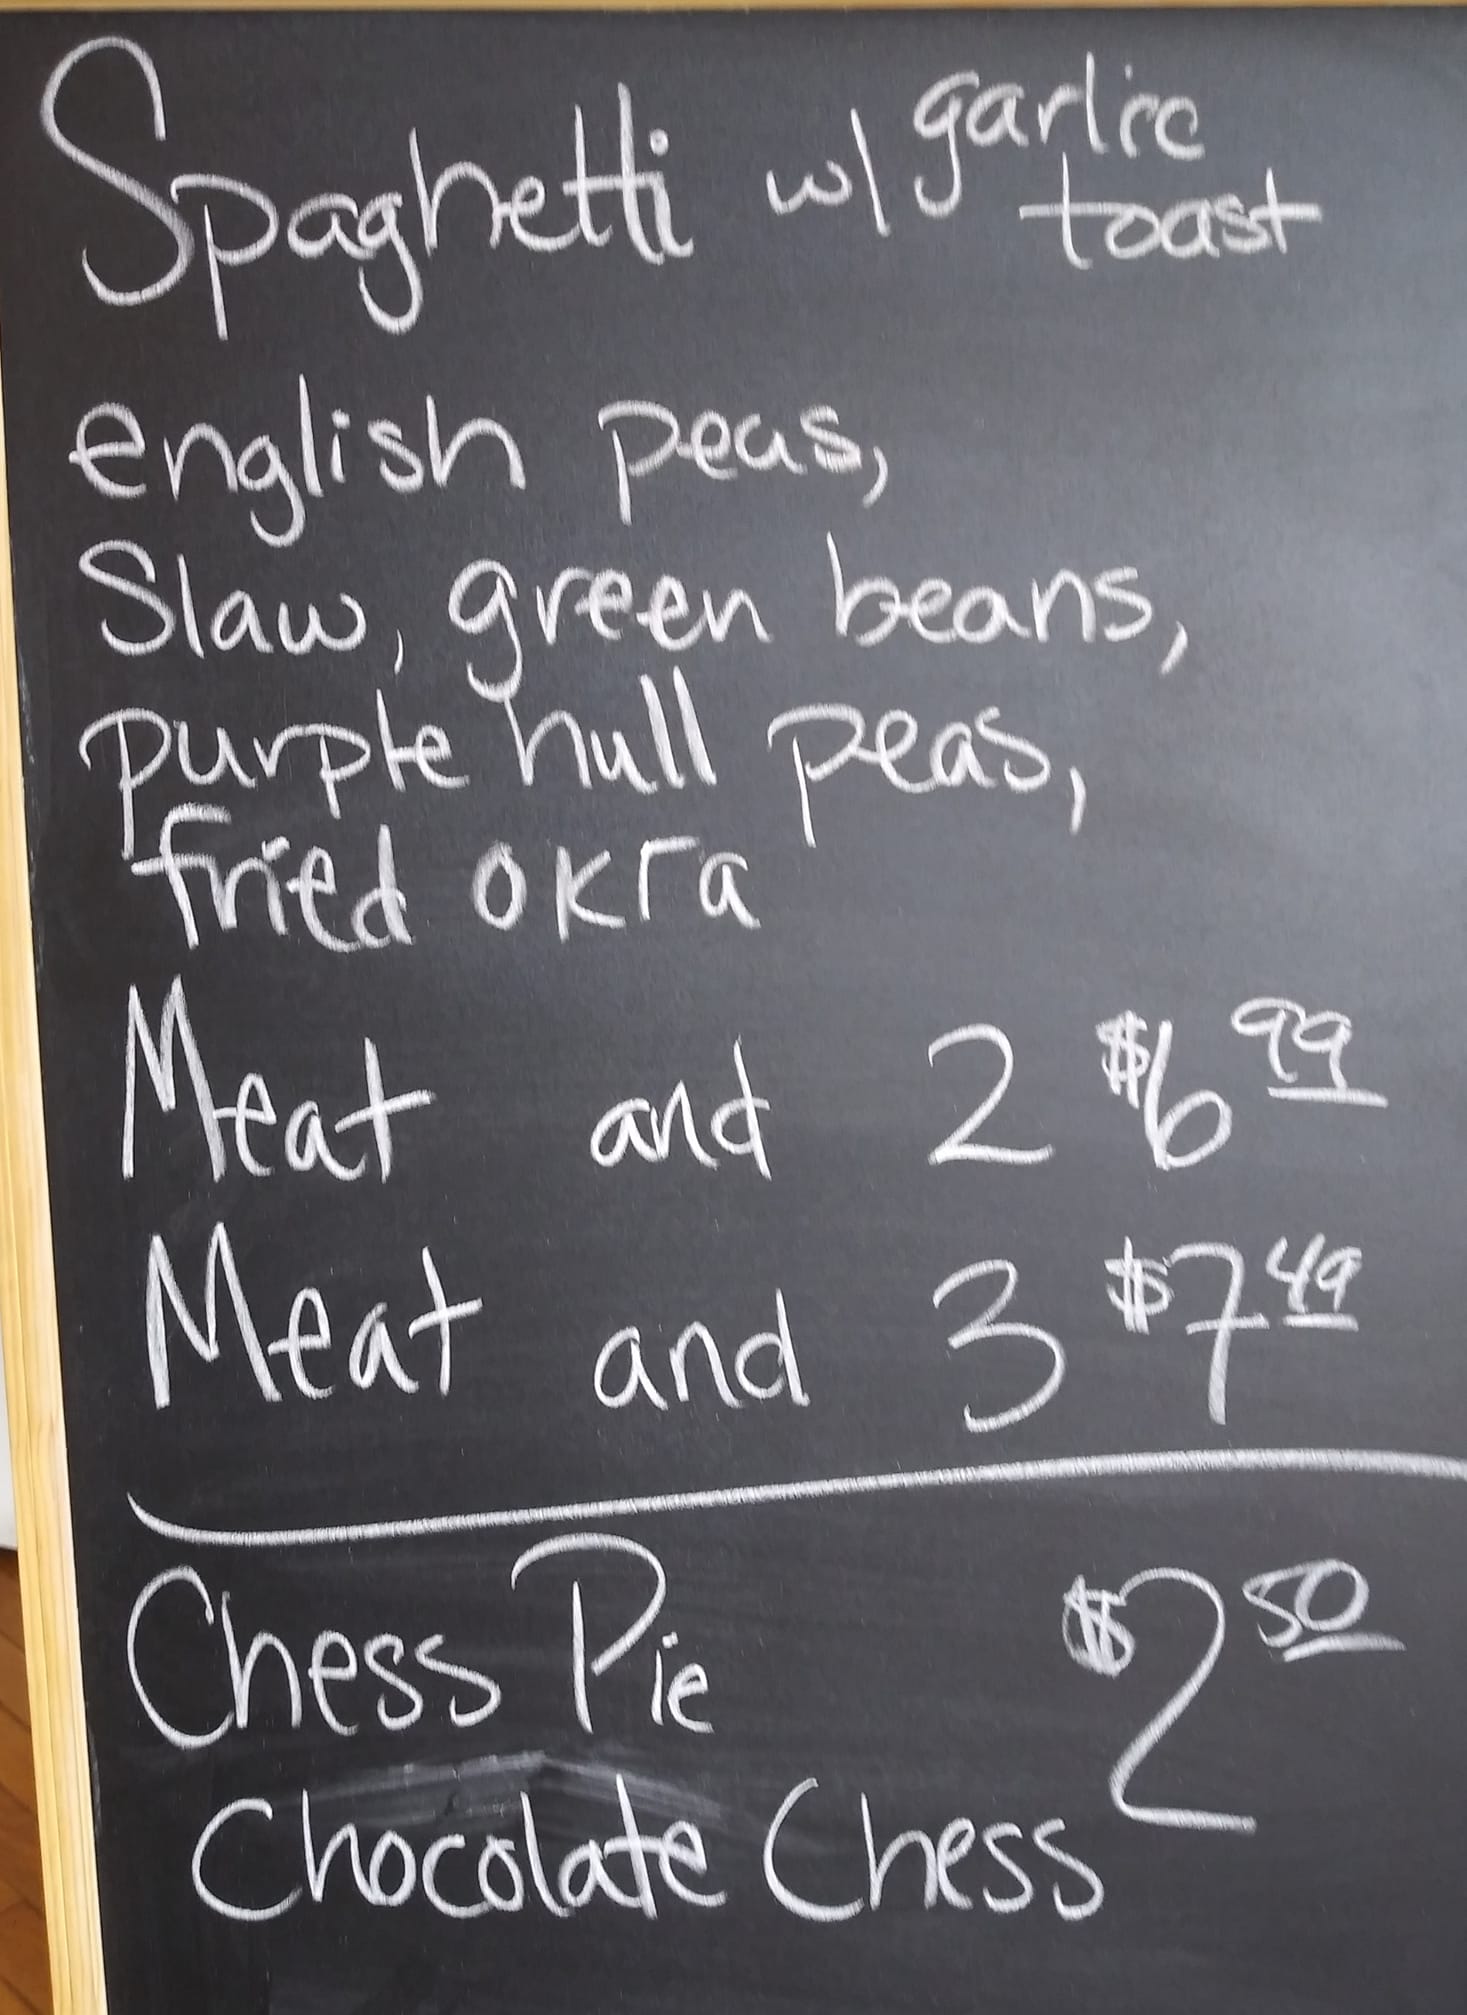 Spaghetti w/ garlic toast
english peas,
Slaw, green beans,
purple hull peas,
fried okra
Meat and 2 $6 99
Meat and 3 $7 49
Chess Pie $2 50
Chocolate Chess